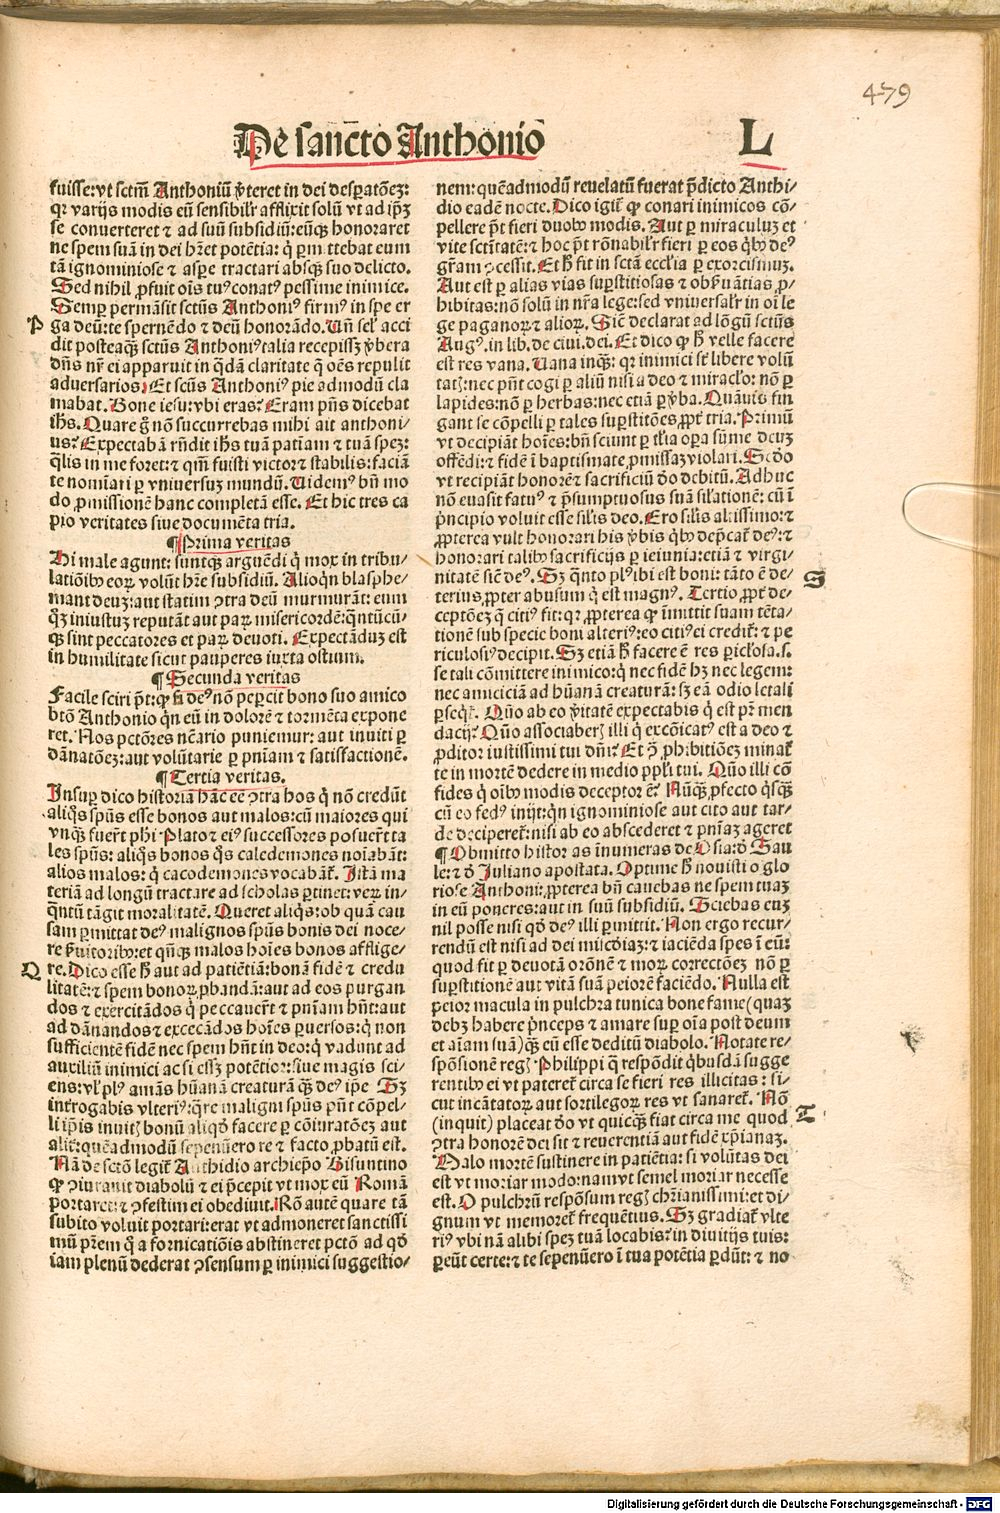 479
De sancto Anthonio
L
fuisse: vt sctm̄ Anthoniū ꝟteret in dei desꝑatōeꝫ:
qꝛ varijs modis eū sensibilr̄ afflixit solū vt ad ip̄ꝫ
se conuerteret ⁊ ad suū subsidiū: eūqꝫ honoraret
ne spem suā in dei hr̄et potētia: q̇ ꝑmittebat eum
tā ignominiose ⁊ aspe tractari absqꝫ suo delicto.
Sed nihil ꝓfuit oīs tuꝰ conatꝰ pessime inimice.
Semꝑ permāsit sctūs Anthoniꝰ firmꝰ in spe er
P
ga deū: te spernēdo ⁊ deū honorādo. Vn̄ sel̓ acci
dit posteaqꝫ sctūs Anthoniꝰ talia recepissꝫ ꝟbera
dn̄s nr̄ ei apparuit in q̄dā claritate q̄ oēs repulit
aduersarios. Et scūs Anthoniꝰ pie admodū cla
mabat. Bone iesu: vbi eras? Eram pn̄s dicebat
ih̄s. Quare g̊ nō succurrebas mihi ait anthoni
us? Expectabā rn̄dit ih̄s tuā patīam ⁊ tuā speꝫ:
q̄lis in me foret: ⁊ qm̄ fuisti victor ⁊ stabilis: faciā
te nomīari ꝑ vniuersuꝫ mundū. Videmꝰ bn̄ mo
do ꝓmissionē hanc completā esse. Et hic tres ca
pio veritates siue documēta tria.
¶ Prima veritas
Hi male agunt: suntqꝫ arguēdi q̇ mox in tribu-
latiōibꝰ eoꝝ volūt hr̄e subsidiū. Alioqn̄ blasphe-
mant deuꝫ: aut statim ꝯtra deū murmurāt: eum
q̇ꝫ iniustuꝫ reputāt aut paꝝ misericordē: q̄ntūcū-
qꝫ sint peccatores et paꝝ deuoti. Expectāduꝫ est
in humilitate sicut pauperes iuxta ostium.
¶ Secunda veritas
Facile sciri pōt: ꝙ si deꝰ nō peꝑcit bono suo amico
btō Anthonio qn̄ eū in dolorē ⁊ tormēta expone
ret. Nos pctōres nēario puniemur: aut inuiti ꝑ
dānatōeꝫ: aut volūtarie ꝑ pn̄iam ⁊ satisfactionē.
¶ Tertia veritas.
Insuꝑ dico historiā hāc eē ꝯtra hos q̇ nō credūt
aliq̇s spūs esse bonos aut malos: cū maiores qui
vnqꝫ fuer̄t phi Plato ⁊ eiꝰ successores posuer̄t ta
les spūs: aliq̇s bonos q̇s caledemones noīabāt:
alios malos: q̇ cacodemones vocabāt. Istā ma
teriā ad longū tractare ad scholas ꝑtinet: veꝝ in-
q̄ntū tāgit moralitatē. Queret aliq̇s: ob quā cau
sam ꝑmittat deꝰ malignos spūs bonis dei noce-
re ẜuitoribꝰ: et qn̄qꝫ malos hoīes bonos afflige-
Q
re. Dico esse hͦ aut ad patiētiā: bonā fidē ⁊ credu
litatē: ⁊ spem bonoꝝ ꝓbandā: aut ad eos purgan
dos ⁊ exercitādos q̇ peccauer̄t ⁊ pn̄iam hn̄t: aut
ad dānandos ⁊ excecādos hoīes ꝑuersos: q̇ non
sufficientē fidē nec spem hn̄t in deo: q̇ vadunt ad
auxiliū inimici ac si essꝫ potētior: siue magis sci-
ens: vl̓ plꝰ amās hūanā creaturā qꝫ deꝰ ip̄e Sꝫ
interrogabis vlteriꝰ: q̄re maligni spūs pn̄t cōpel-
li ip̄is inuitis bonū aliqd̓ facere ꝑ cōiuratōeꝫ aut
alit̓: quēadmodū sepenūero re ⁊ facto ꝓbatū est.
Nā de sctō legit̓ Anthidio archiep̄o Bisuntino
ꝙ ꝯiurauit diabolū ⁊ ei p̄cepit vt mox eū Romā
portaret: ⁊ ꝯfestim ei obediuit. Rō autē quare tā
subito voluit portari: erat vt admoneret sanctissi
mū pr̄em q̇ a fornicatiōis abstineret pctō ad qd̓
iam plenū dederat ꝯsensum ꝑ inimici suggestio-
nem: quēadmodū reuelatū fuerat p̄dicto Anthi-
dio eadē nocte. Dico igit̓ ꝙ conari inimicos cō-
pellere pōt fieri duobꝰ modis. Aut ꝑ miraculuꝫ et
vite sctītatē: ⁊ hoc pōt rōnabilr̄ fieri ꝑ eos q̇bꝰ deꝰ
gr̄am ꝯcessit. Et hͦ fit in sctā eccl̓ia ꝑ exorcismuꝫ.
Aut est ꝑ alias vias suꝑstitiosas ⁊ obẜuātias ꝓ-
hibitas: nō solū in nr̄a lege: sed vniuersalr̄ in oī le
ge paganoꝝ ⁊ alioꝝ. Sic̄ declarat ad lōgū sctūs
Augꝰ. in lib. de ciui. dei. Et dico ꝙ hͦ velle facere
est res vana. Vana inqꝫ: qꝛ inimici st̄ libere volū
tatis: nec pn̄t cogi ꝑ aliū nisi a deo ⁊ miracl̓o: nō ꝑ
lapides: nō ꝑ herbas: nec etiā ꝑ ꝟba. Quāuis fin
gant se cōpelli ꝑ tales suꝑstitōes, ꝓpt̓ tria. Primū
vt decipiāt hoīes: bn̄ sciunt ꝑ tl̓ia oꝑa sūme deuꝫ
offēdi: ⁊ fidē ī baptismate ꝓmissaꝫ violari. Scd̓o
vt recipiāt honorē ⁊ sacrificiū deo debitū. Adhuc
nō euasit fatuꝰ ⁊ p̄sumptuosus suā sil̓ationē: cū ī
p̄ncipio voluit esse sil̓is deo. Ero sil̓is altissimo: ⁊
ꝓpterea vult honorari his ꝟbis q̇bꝰ dep̄cat̓ deꝰ: ⁊
honorari talibꝰ sacrificijs ꝑ ieiunia: etiā ⁊ virgi
nitatē sic̄ deꝰ. Sꝫ q̄nto plꝰ ibi est boni: tāto ē de-
S
terius, ꝓpter abusum q̇ est magnꝰ. Tertio ꝓpt̓ de-
ceptōeꝫ q̄ citiꝰ fit: qꝛ ꝓpterea q̇ īmittit suam tēta-
tionē sub specie boni alteriꝰ: eo citiꝰ ei credit̓: ⁊ pe
riculosiꝰ decipit. Sꝫ etiā hͦ facere ē res ꝑicl̓osa. s.
se tali cōmittere inimico: q̇ nec fidē hꝫ nec legem:
nec amiciciā ad hūanā creaturā: sꝫ eā odio letali
ꝑseqt̓. Quō ab eo ꝟitatē expectabis q̇ est pr̄ men
dacij? Quō associaberis illi q̇ excōicatꝰ est a deo ⁊
ꝓditor iustissimi tui dn̄i? Et ꝙ ꝓhibitiōeꝫ minat̓
te in mortē dedere in medio ppl̓i tui. Quō illi cō
fides q̇ oībꝰ modis deceptor ē? Nūqꝫ ꝓfecto q̇sqꝫ
cū eo fedꝰ inijt: qn̄ ignominiose aut cito aut tar-
de deciperet̓: nisi ab eo abscederet ⁊ pn̄iaꝫ ageret
¶ Obmitto histor as īnumeras de Osia: ð Sau
le: ⁊ ð Juliano apostata. Optime hͦ nouisti o glo
riose Anthoni: ꝓpterea bn̄ cauebas ne spem tuaꝫ
in eū poneres: aut in suū subsidiū. Sciebas euꝫ
nil posse nisi qd̓ deꝰ illi ꝑmittit. Non ergo recur-
rendū est nisi ad dei mīcdiaꝫ: ⁊ iaciēda spes ī eū:
quod fit ꝑ deuotā orōnē ⁊ moꝝ correctōeꝫ nō ꝑ
suꝑstitionē aut vitā suā peiorē faciēdo. Nulla est
peior macula in pulchra tunica bone fame (quaꝫ
debꝫ habere p̄nceps ⁊ amare suꝑ oīa post deum
et aīam suā) qꝫ eū esse deditū diabolo. Notate re-
spōsionē regis Philippi q̄ respōdit q̇busdā sugge
rentibꝰ ei vt pateret̓ circa se fieri res illicitas: si-
cut incātatoꝝ aut sortilegoꝝ res vt sanaret̓. Nō
T
(inquit) placeat deo vt quicqꝫ fiat circa me quod
ꝯtra honorē dei sit ⁊ reuerentiā aut fidē xp̄ianaꝫ.
Malo mortē sustinere in patiētia: si volūtas dei
est vt moriar modo: nam vt semel moriar necesse
est. O pulchrū respōsum regis chr̄ianissimi: et di-
gnum vt memoret̓ frequētius. Sꝫ gradiat̓ vlte
riꝰ vbi nā alibi speꝫ tuā locabis? in diuitijs tuis:
ꝑeūt certe: ⁊ te sepenūero ī tua potētia ꝑdūt: ⁊ no
Digitalisierung gefördert durch die Deutsche Forschungsgemeinschaft - DFG